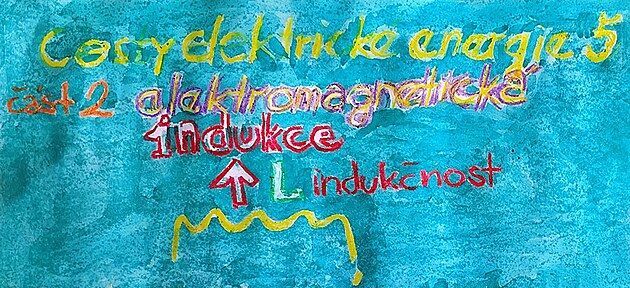 Cesty elektrické energie 5
část 2 elektromagnetická
indukce
L indukčnost